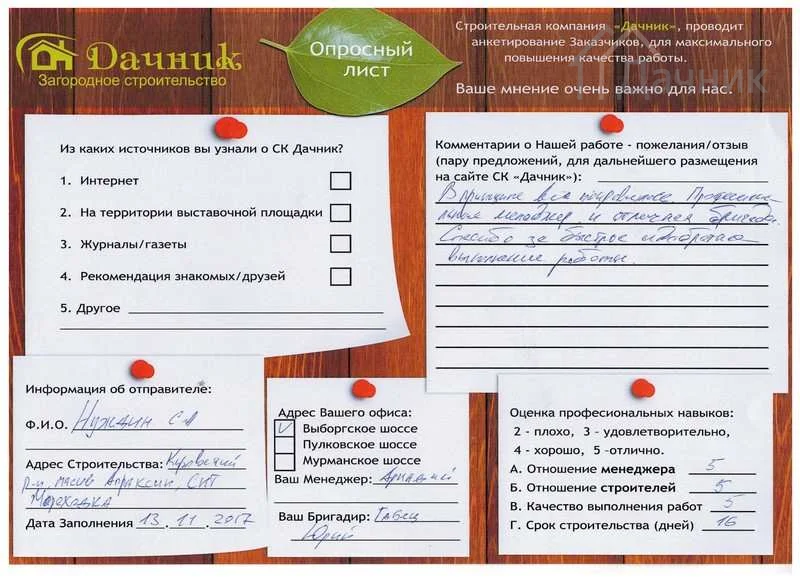 Дачник
Загородное строительство
Опросный
лист
Строительная компания «Дачник», проводит
анкетирование Заказчиков, для максимального
повышения качества работы.
Ваше мнение очень важно для нас.
Дачник
Из каких источников вы узнали о СК Дачник?
1. Интернет
2. На территории выставочной площадки
3. Журналы/газеты
4. Рекомендация знакомых/друзей
5. Другое
Комментарии о Нашей работе - пожелания/отзыв
(пару предложений, для дальнейшего размещения
на сайте СК «Дачник»):
В принципе всё понравилось. Професио-
нальная менеджер и отличная бригада.
Спасибо за быстрое
выполнение работы.
Информация об отправителе:
Ф.И.О. Нуждин С А
Адрес Строительства: Кировский
р-н, масив Апраксин, СНТ
Дата Заполнения 13.11.2017
Адрес Вашего офиса:
Выборгское шоссе
Пулковское шоссе
Мурманское шоссе
Ваш Менеджер:
Ваш Бригадир:
Юрий
Оценка професиональных навыков:
2 - плохо, 3 - удовлетворительно,
4 - хорошо, 5 -отлично.
А. Отношение менеджера 5
Б. Отношение строителей 5
В. Качество выполнения работ 5
Г. Срок строительства (дней) 16